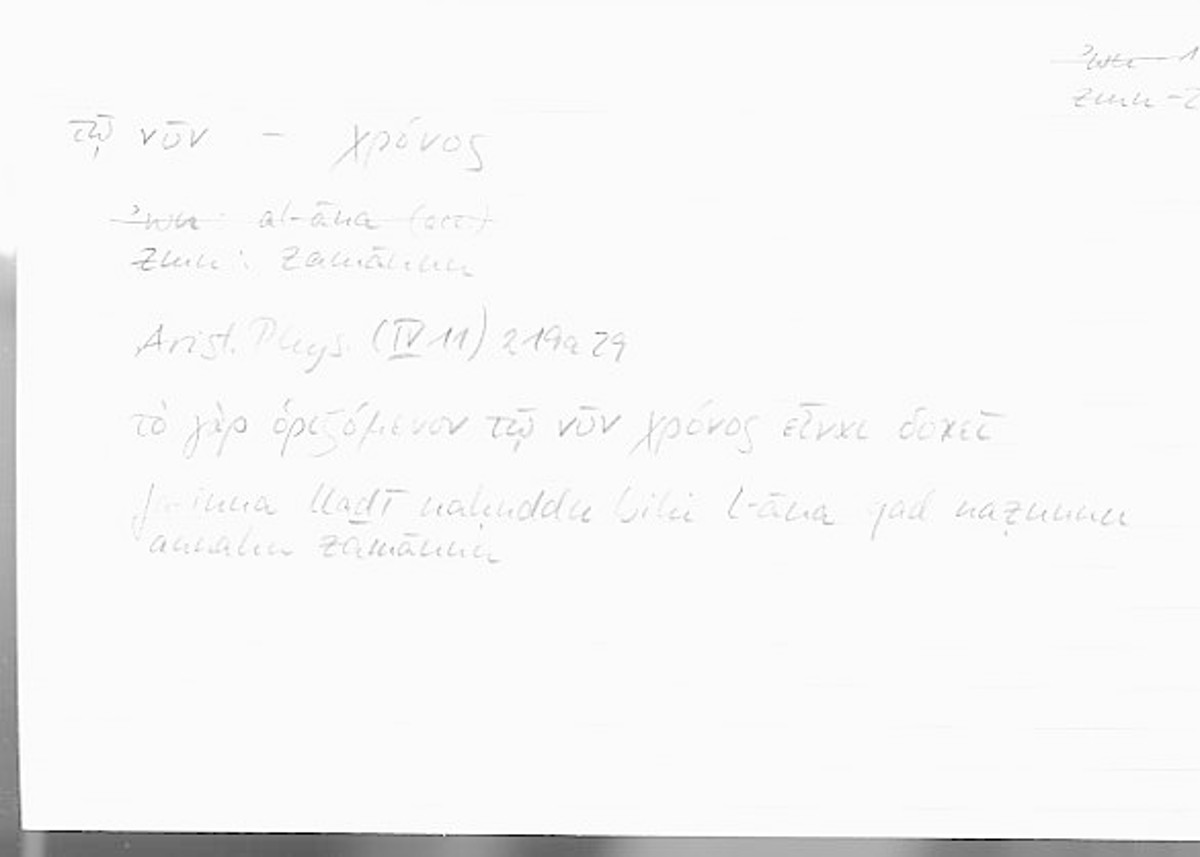 ʾwn - 1
zmn - 2
τῷ νῦν - χρόνος
ʾwn: al-āna (acc.)
zmn: zamānun
Arist. Phys. (IV 11) 219a29
τὸ γὰρ ὁριζόμενον τῷ νῦν χρόνος εἶναι δοκεῖ
fa-inna lladī naḥuddu bihi l-āna qad naẓunnu
annahu zamānun